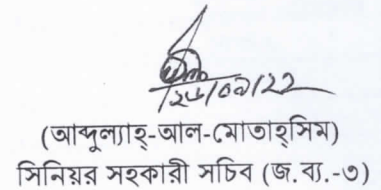 (আব্দুল্যাহ্-আল-মোতাহ্সিম)
সিনিয়র সহকারী সচিব (জ.ব্য.-৩)